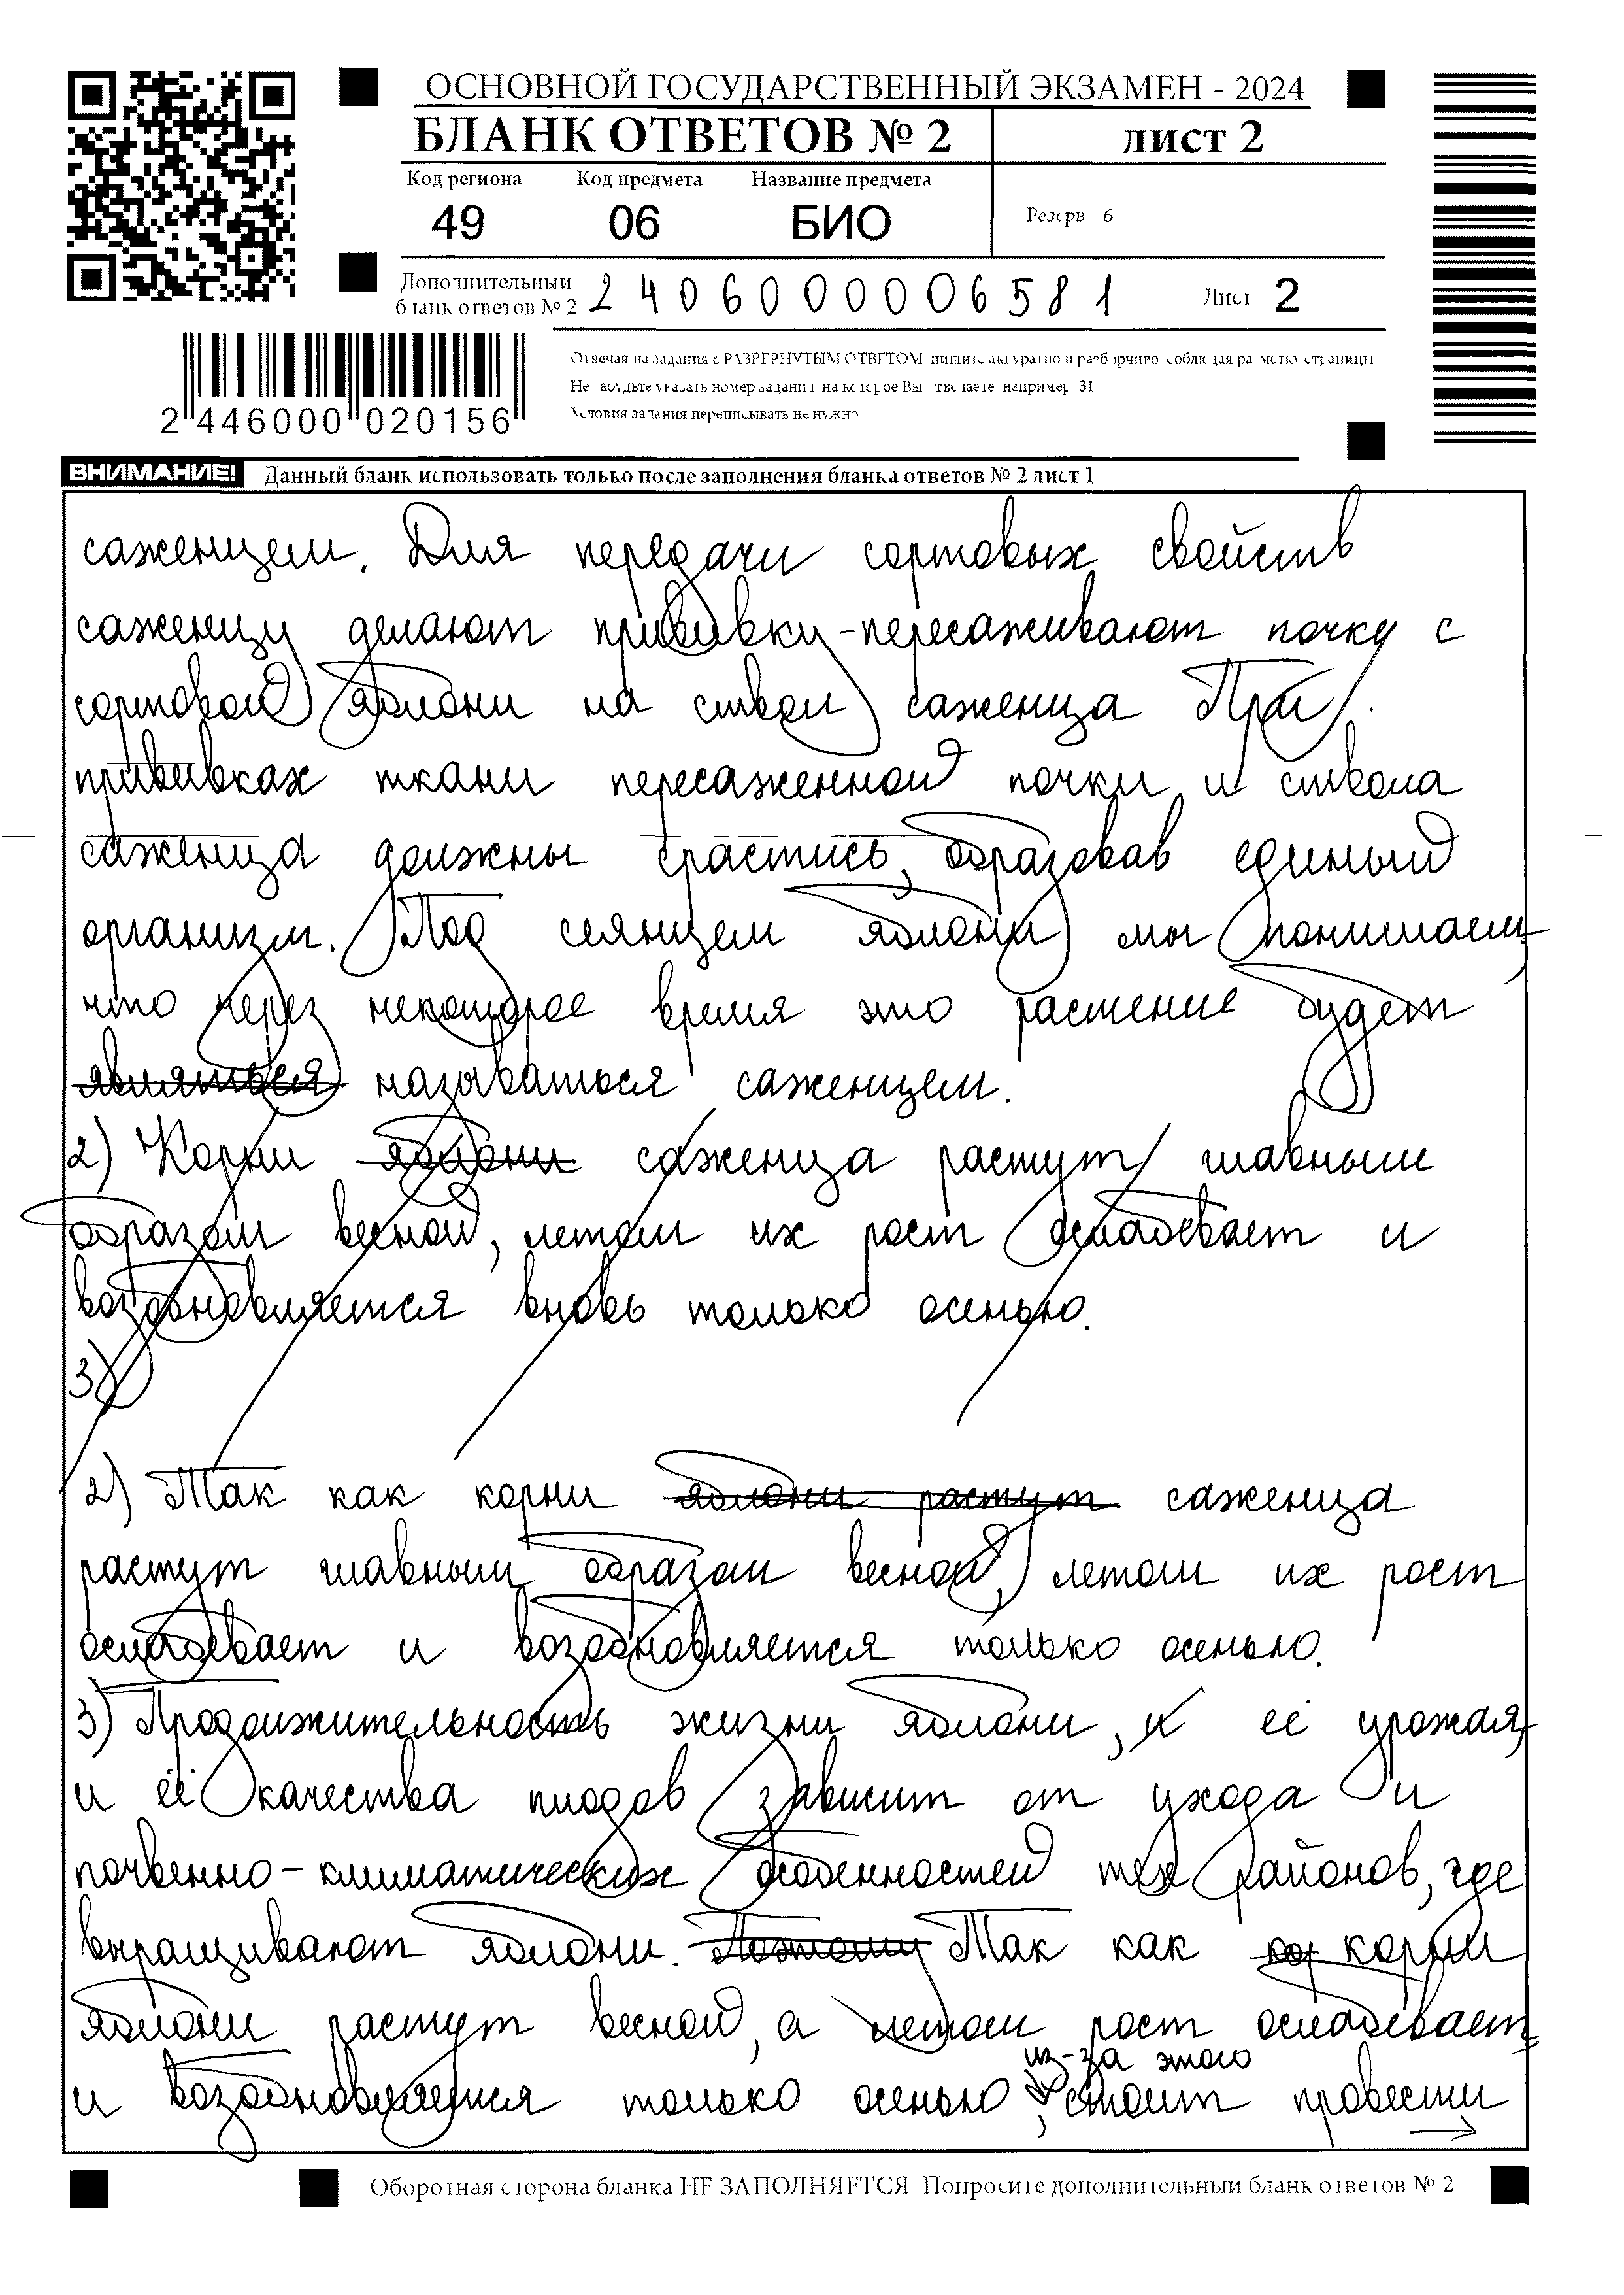 ОСНОВНОЙ ГОСУДАРСТВЕННЫЙ ЭКЗАМЕН - 2024
БЛАНК ОТВЕТОВ № 2
ЛИСТ 2
Код региона Код предмета Название предмета
49 06 БИО
Резерв 6
Дополнительный
бланк ответов № 2 2406000006581
Лист 2
Отвечая на задания с РАЗВЕРНУТЫМ ОТВЕТОМ пишите аккуратно и разборчиво соблюдая разметку страницы
Не забудьте указать номер задания на которое Вы отвечаете например 31
Условия задания переписывать не нужно
2 446000 020156
ВНИМАНИЕ! Данный бланк использовать только после заполнения бланка ответов № 2 лист 1
саженцем. Для передачи сортовых свойств
саженцу делают прививки-пересаживают почку с
сортовой яблони на ствол саженца При
прививках ткани пересаженной почки и ствола
саженца должны срастись, образовав единый
организм. Под сеянцем яблони мы понимаем
что через некоторое время это растение будет
являться называться саженцем.
2) Корни яблони саженца растут главным
образом весной, летом их рост ослабевает и
возобновляется вновь только осенью.
3)
2) Так как корни яблони растут саженца
растут главным образом весной, летом их рост
ослабевает и возобновляется только осенью.
3) Продолжительность жизни яблони, и её урожая,
и её качества плодов зависит от ухода и
почвенно-климатических особенностей тех районов, где
выращивают яблони. Поэтому Так как кор корни
яблони растут весной, а летом рост ослабевает
из-за этого
и возобновляется только осенью, стоит провести
Оборотная сторона бланка НЕ ЗАПОЛНЯЕТСЯ Попросите дополнительный бланк ответов № 2